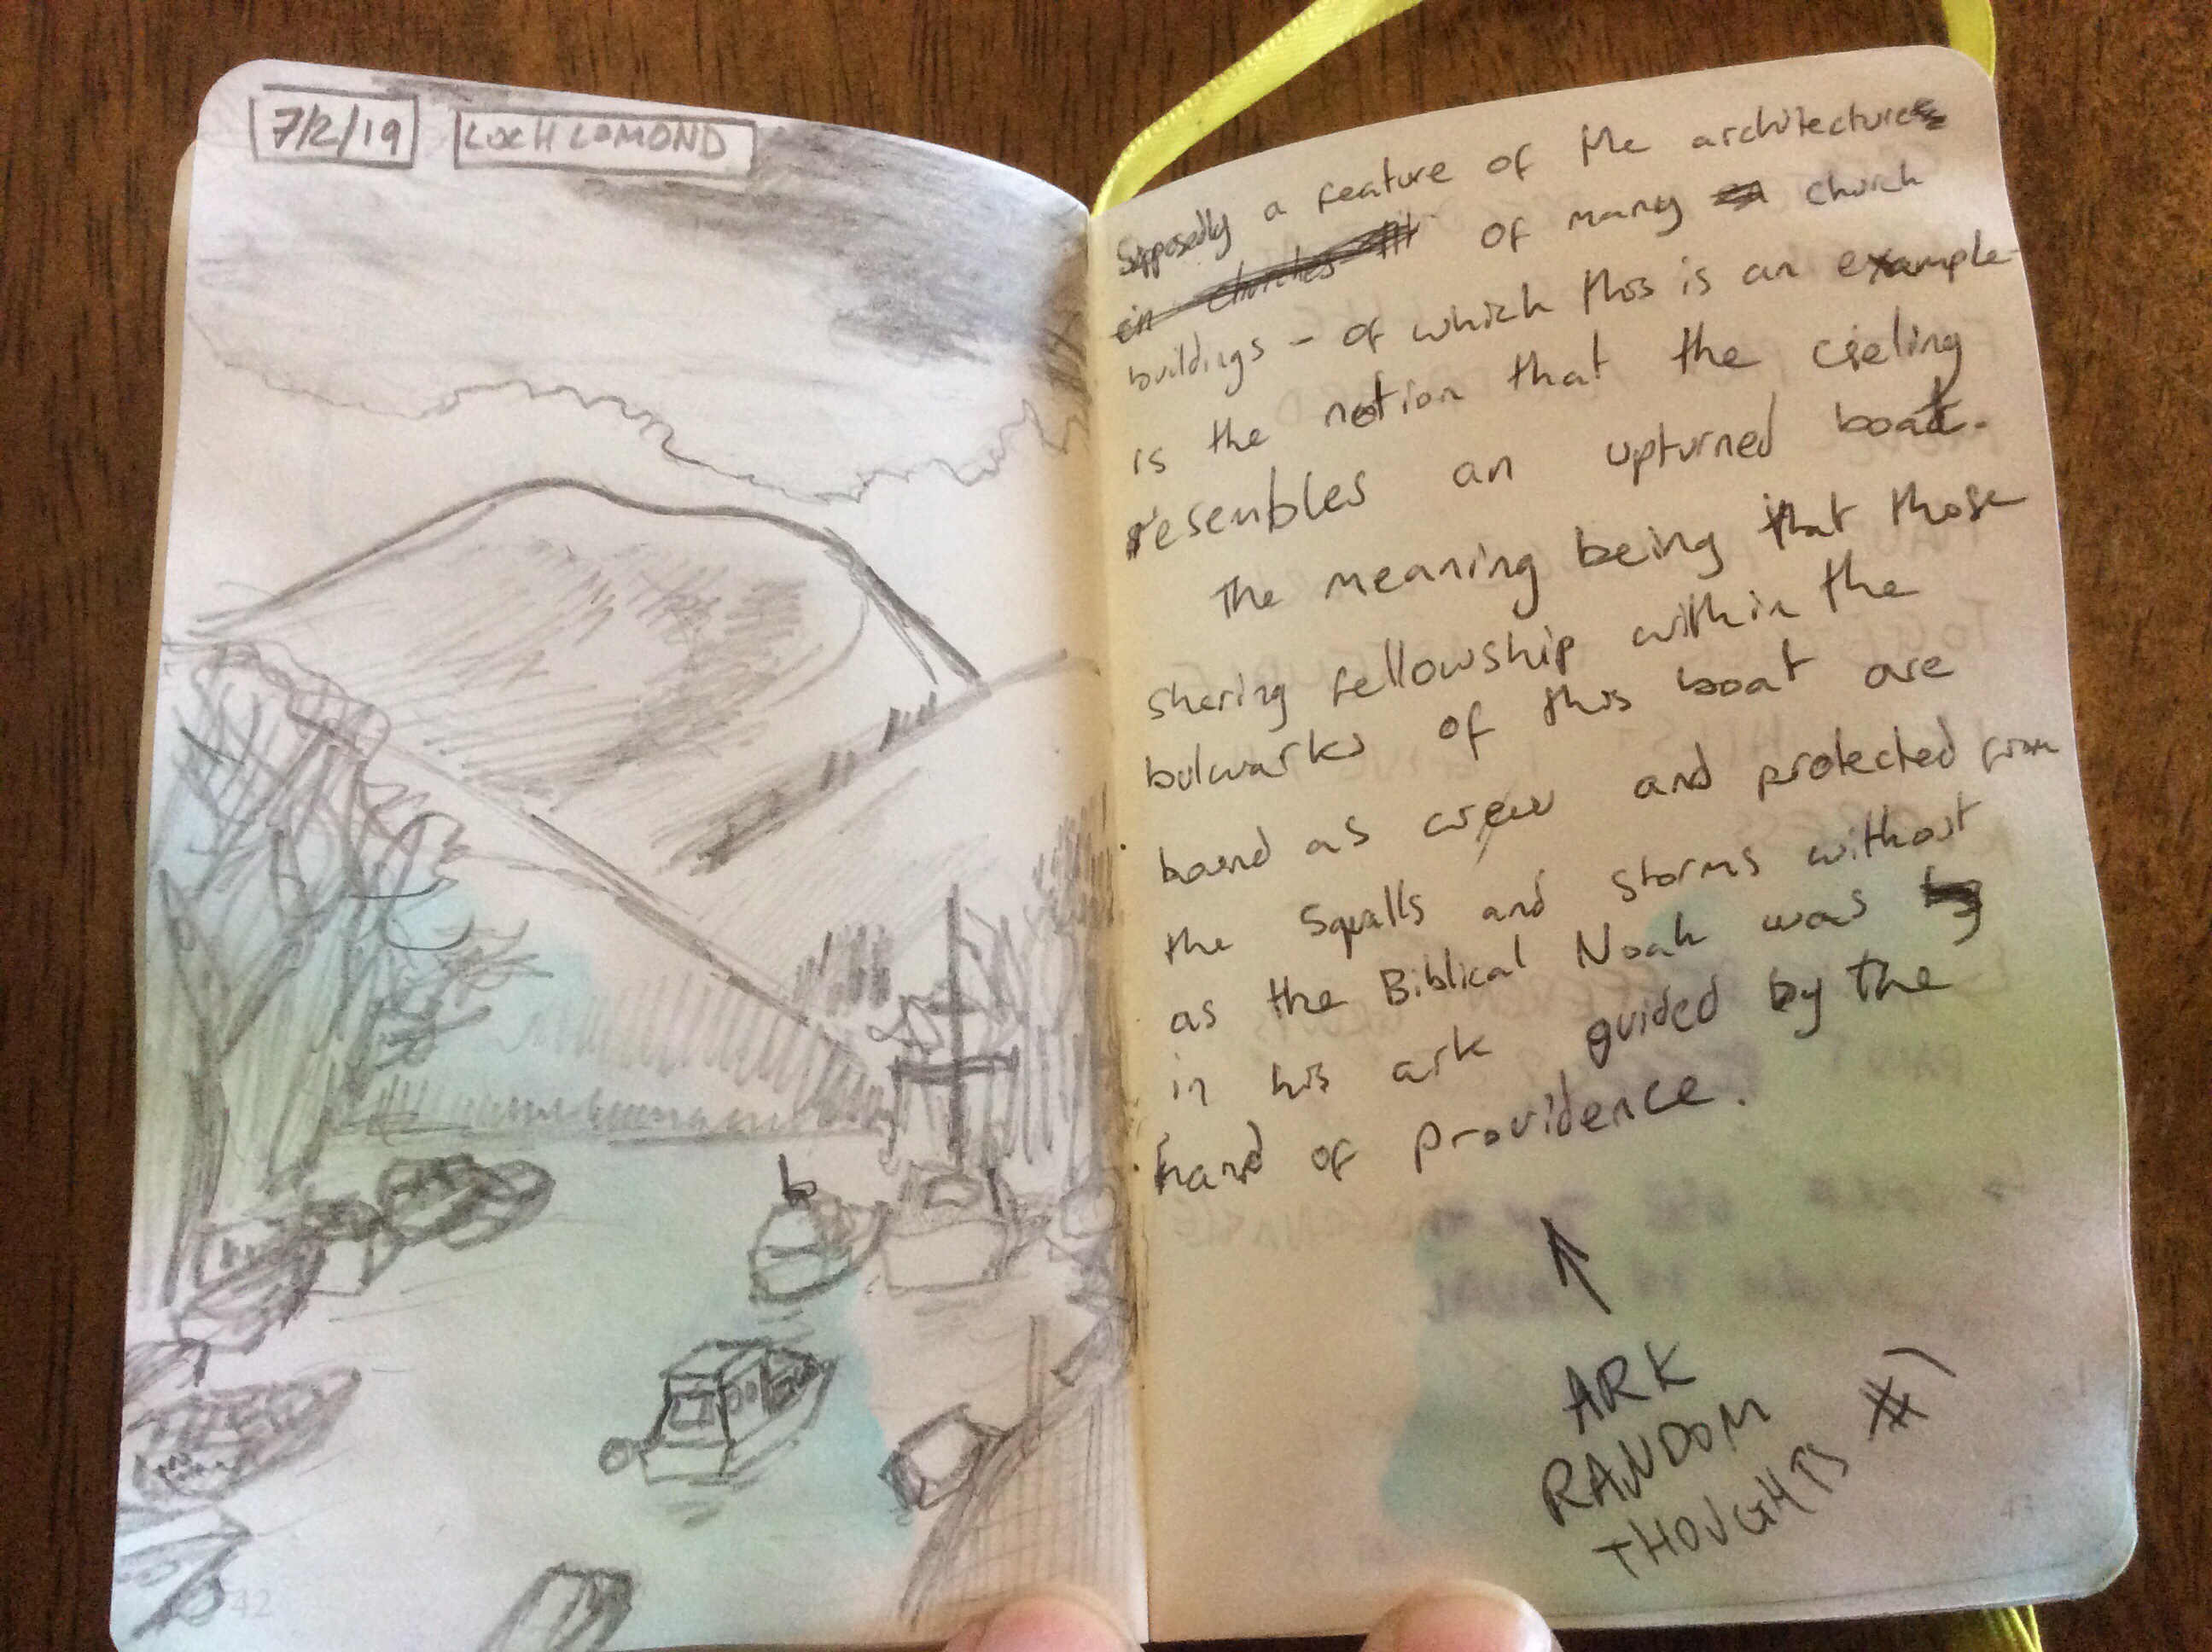 7/2/19
LOCH LOMOND
Supposedly a feature of the architecture
in churches of many church
buildings - of which this is an example -
is the notion that the cieling
resembles an upturned boat.
The meaning being that those
sharing fellowship within the
bulwarks of this boat are
bound as crew and protected from
the squalls and storms without
as the Biblical Noah was by
in his ark guided by the
hand of providence.
ARK
RANDOM
THOUGHTS #1
42
43